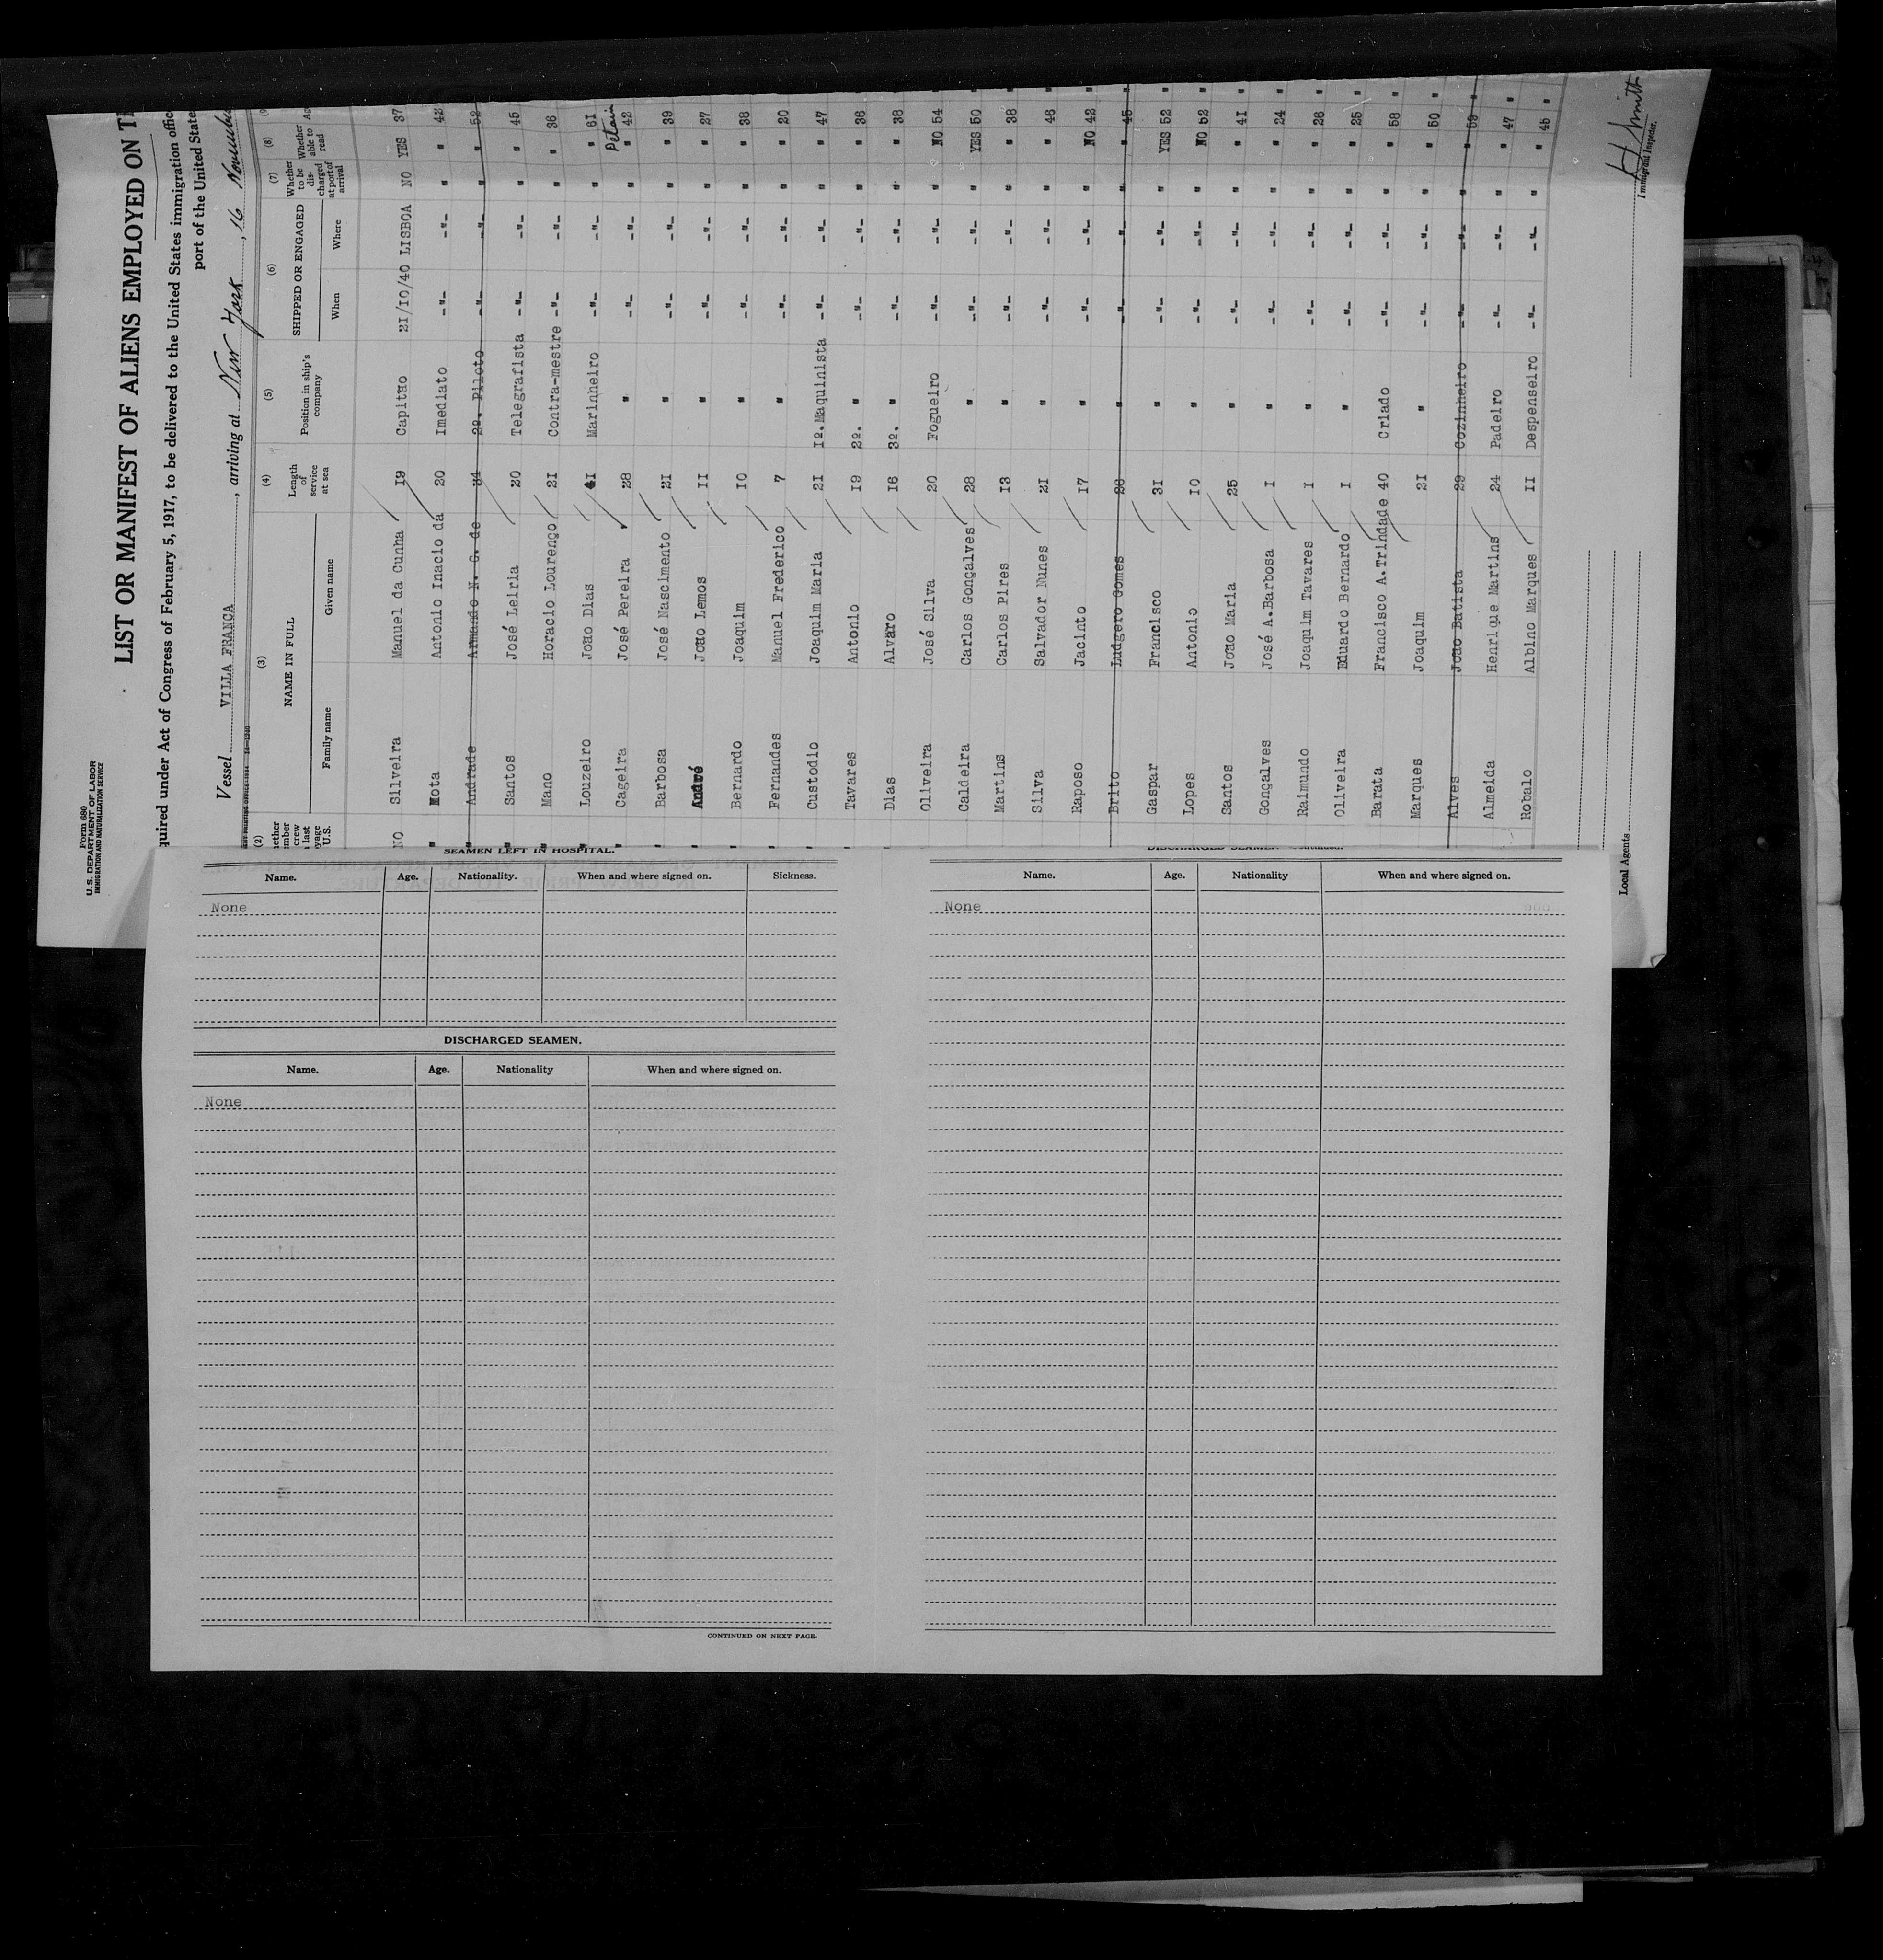 Form 680
U. S. DEPARTMENT OF LABOR
IMMIGRATION AND NATURALIZATION SERVICE
LIST OR MANIFEST OF ALIENS EMPLOYED ON
quired under Act of Congress of February 5, 1917, to be delivered to the United States immigration
port of the United
Vessel VILLA FRANCA, arriving at New York, 16
(2) (3) (4) (5) (6) (7) (8)
NAME IN FULL Length of service at sea Position in ship's company SHIPPED OR ENGAGED Whether to be discharged at port of arrival Whether able to read
last U.S. Family name Given name When Where
NO Silveira Manuel da Cunha 19 Capitão 21/10/40 LISBOA NO YES 37
" Mota Antonio Inacio da 20 Imediato -"- -"- " " 42
" Andrade Armando N. G. de 34 2º. Piloto -"- -"- " " 52
" Santos José Leiria 20 Telegrafista -"- -"- " " 45
" Mano Horacio Lourenço 21 Contra-mestre -"- -"- " " 36
" Louzeiro João Dias 41 Marinheiro -"- -"- " " 61
Detain
" Cageira José Pereira 28 " -"- -"- " " 42
" Barbosa José Nascimento 21 " -"- -"- " " 39
" André João Lemos 11 " -"- -"- " " 27
" Bernardo Joaquim 10 " -"- -"- " " 38
" Fernandes Manuel Frederico 7 " -"- -"- " " 20
" Custodio Joaquim Maria 21 1º.Maquinista -"- -"- " " 47
" Tavares Antonio 19 2º. " -"- -"- " " 36
" Dias Alvaro 16 3º. " -"- -"- " " 38
" Oliveira José Silva 20 Fogueiro -"- -"- " NO 54
" Caldeira Carlos Gonçalves 28 " -"- -"- " YES 50
" Martins Carlos Pires 13 " -"- -"- " " 38
" Silva Salvador Nunes 21 " -"- -"- " " 46
" Raposo Jacinto 17 " -"- -"- " NO 42
" Brito Ludgero Gomes 28 " -"- -"- " " 45
" Gaspar Francisco 31 " -"- -"- " YES 52
" Lopes Antonio 10 " -"- -"- " NO 32
" Santos João Maria 25 " -"- -"- " " 41
" Gonçalves José A.Barbosa 1 " -"- -"- " " 24
" Raimundo Joaquim Tavares 1 " -"- -"- " " 26
" Oliveira Eduardo Bernardo 1 " -"- -"- " " 25
" Barata Francisco A.Trindade 40 Criado -"- -"- " " 58
" Marques Joaquim 21 " -"- -"- " " 50
" Alves João Batista 29 Cozinheiro -"- -"- " " 53
" Almeida Henrique Martins 24 Padeiro -"- -"- " " 47
" Robalo Albino Marques 11 Despenseiro -"- -"- " " 45
Local Agents
H Smith
Immigrant Inspector.
SEAMEN LEFT IN HOSPITAL.
Name. Age. Nationality. When and where signed on. Sickness.
None
DISCHARGED SEAMEN.
Name. Age. Nationality When and where signed on.
None
CONTINUED ON NEXT PAGE.
Name. Age. Nationality When and where signed on.
None